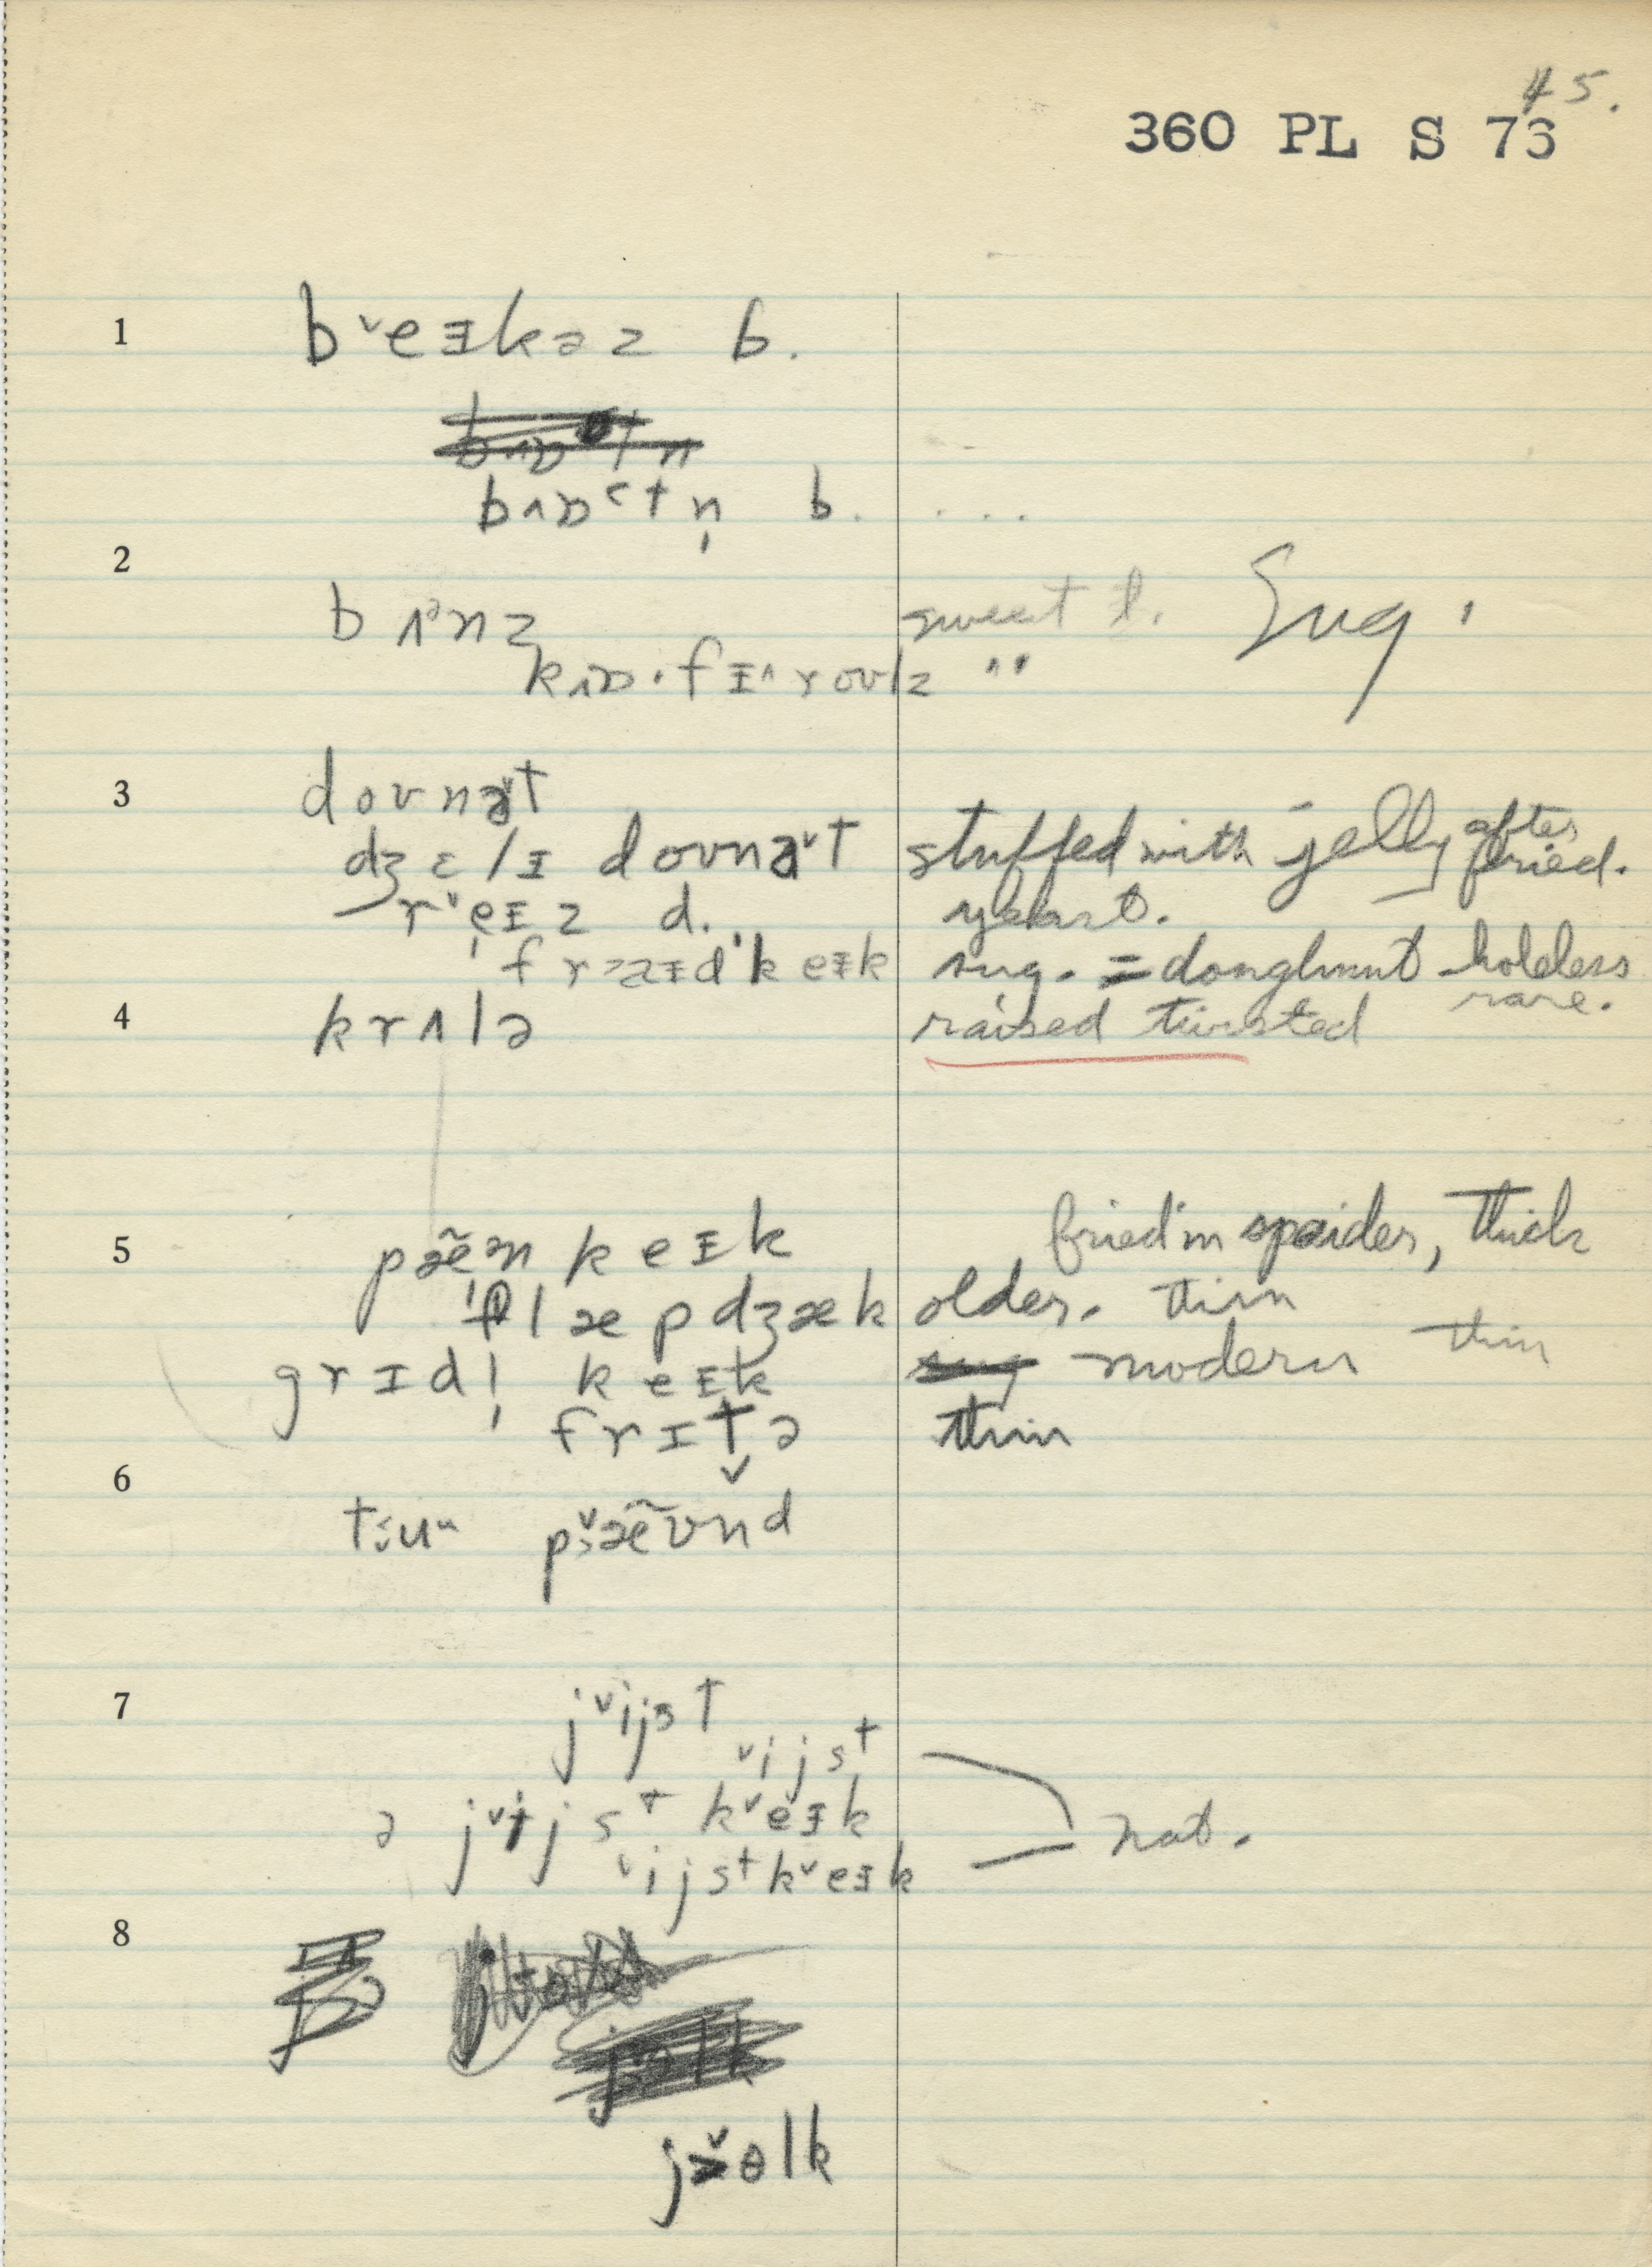 45.
360 PL S 76
1 bˇeɪkəz b.
bɒstn̩ b. ....
2 bʌnz sweet b. Sug.
rovlz "
3 dovnət
dʒɛlɪ dovnəˇt stuffed with jelly after fried.
rˇeɪz d. yeast.
fraɪd keɪk sug. = doughnut holeless
rare.
4 krʌlə raised twisted
5 pæ̃n keɪk fried in spider, thick
flæpdʒæk older. thin
grɪdl̩ keɪk sug modern thin
frɪt̬ə thin
6 tu pæ̃ʊnd
7 jˇijst
ˇijst
ə jˇijst kˇeɪk nat.
ˇijst kˇeɪk
8
jɵlk